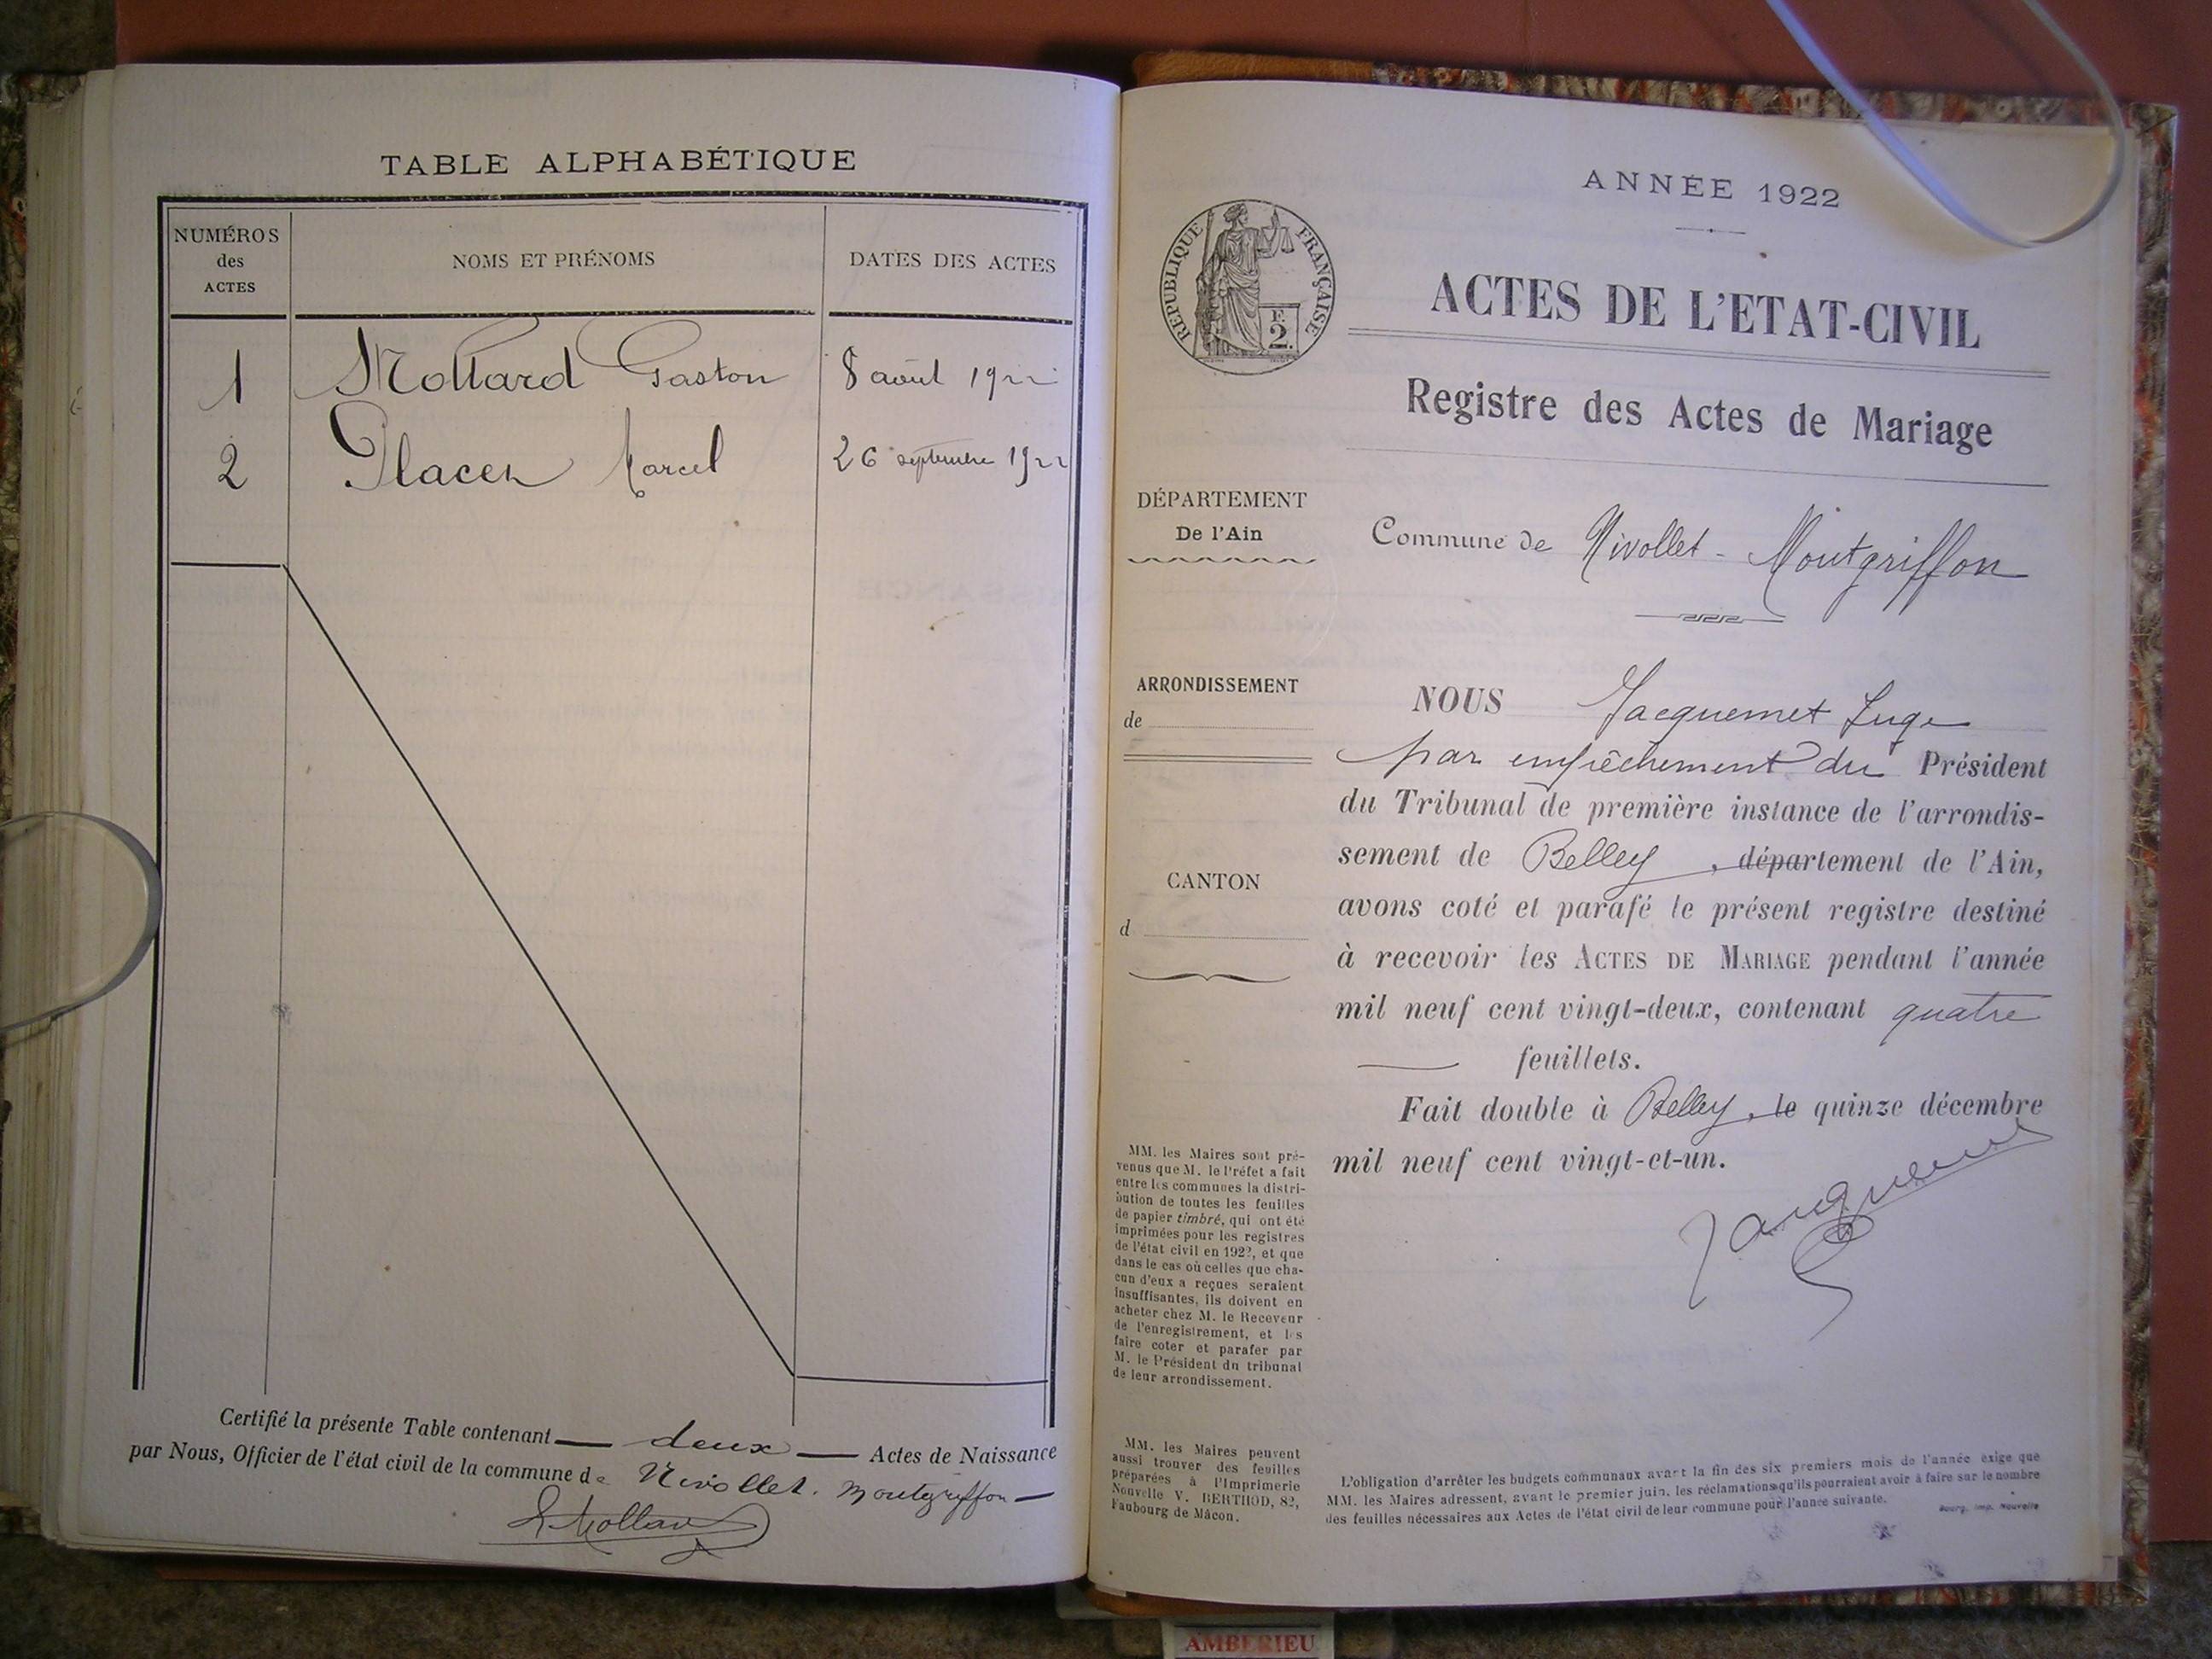 TABLE ALPHABÉTIQUE
NUMÉROS
des
ACTES
NOMS ET PRÉNOMS
DATES DES ACTES
1 Mollard Gaston 8 août 1922
2 Placer Marcel 26 septembre 1922
Certifié la présente Table contenant deux Actes de Naissance
par Nous, Officier de l'état civil de la commune de Nivollet. Montgriffon
Mollard
ANNÉE 1922
RÉPUBLIQUE FRANÇAISE
F.
2.
ACTES DE L'ETAT-CIVIL
Registre des Actes de Mariage
DÉPARTEMENT
De l'Ain
Commune de Nivollet - Montgriffon
ARRONDISSEMENT
de
CANTON
d
NOUS Jacquemet Juge
par empêchement du Président
du Tribunal de première instance de l'arrondis-
sement de Belley, département de l'Ain,
avons coté et parafé le présent registre destiné
à recevoir les ACTES DE MARIAGE pendant l'année
mil neuf cent vingt-deux, contenant quatre
feuillets.
Fait double à Belley, le quinze décembre
mil neuf cent vingt-et-un.
Jacquemet
MM. les Maires sont pré-
venus que M. le Préfet a fait
entre les communes la distri-
bution de toutes les feuilles
de papier timbré, qui ont été
imprimées pour les registres
de l'état civil en 1922, et que
dans le cas où celles que cha-
cun d'eux a reçues seraient
insuffisantes, ils doivent en
acheter chez M. le Receveur
de l'enregistrement, et les
faire coter et parafer par
M. le Président du tribunal
de leur arrondissement.
MM. les Maires peuvent
aussi trouver des feuilles
préparées à l'Imprimerie
Nouvelle V. BERTHOD, 82,
Faubourg de Mâcon.
L'obligation d'arrêter les budgets communaux avant la fin des six premiers mois de l'année exige que
MM. les Maires adressent, avant le premier juin, les réclamations qu'ils pourraient avoir à faire sur le nombre
des feuilles nécessaires aux Actes de l'état civil de leur commune pour l'année suivante.
Bourg, Imp. Nouvelle
AMBERIEU